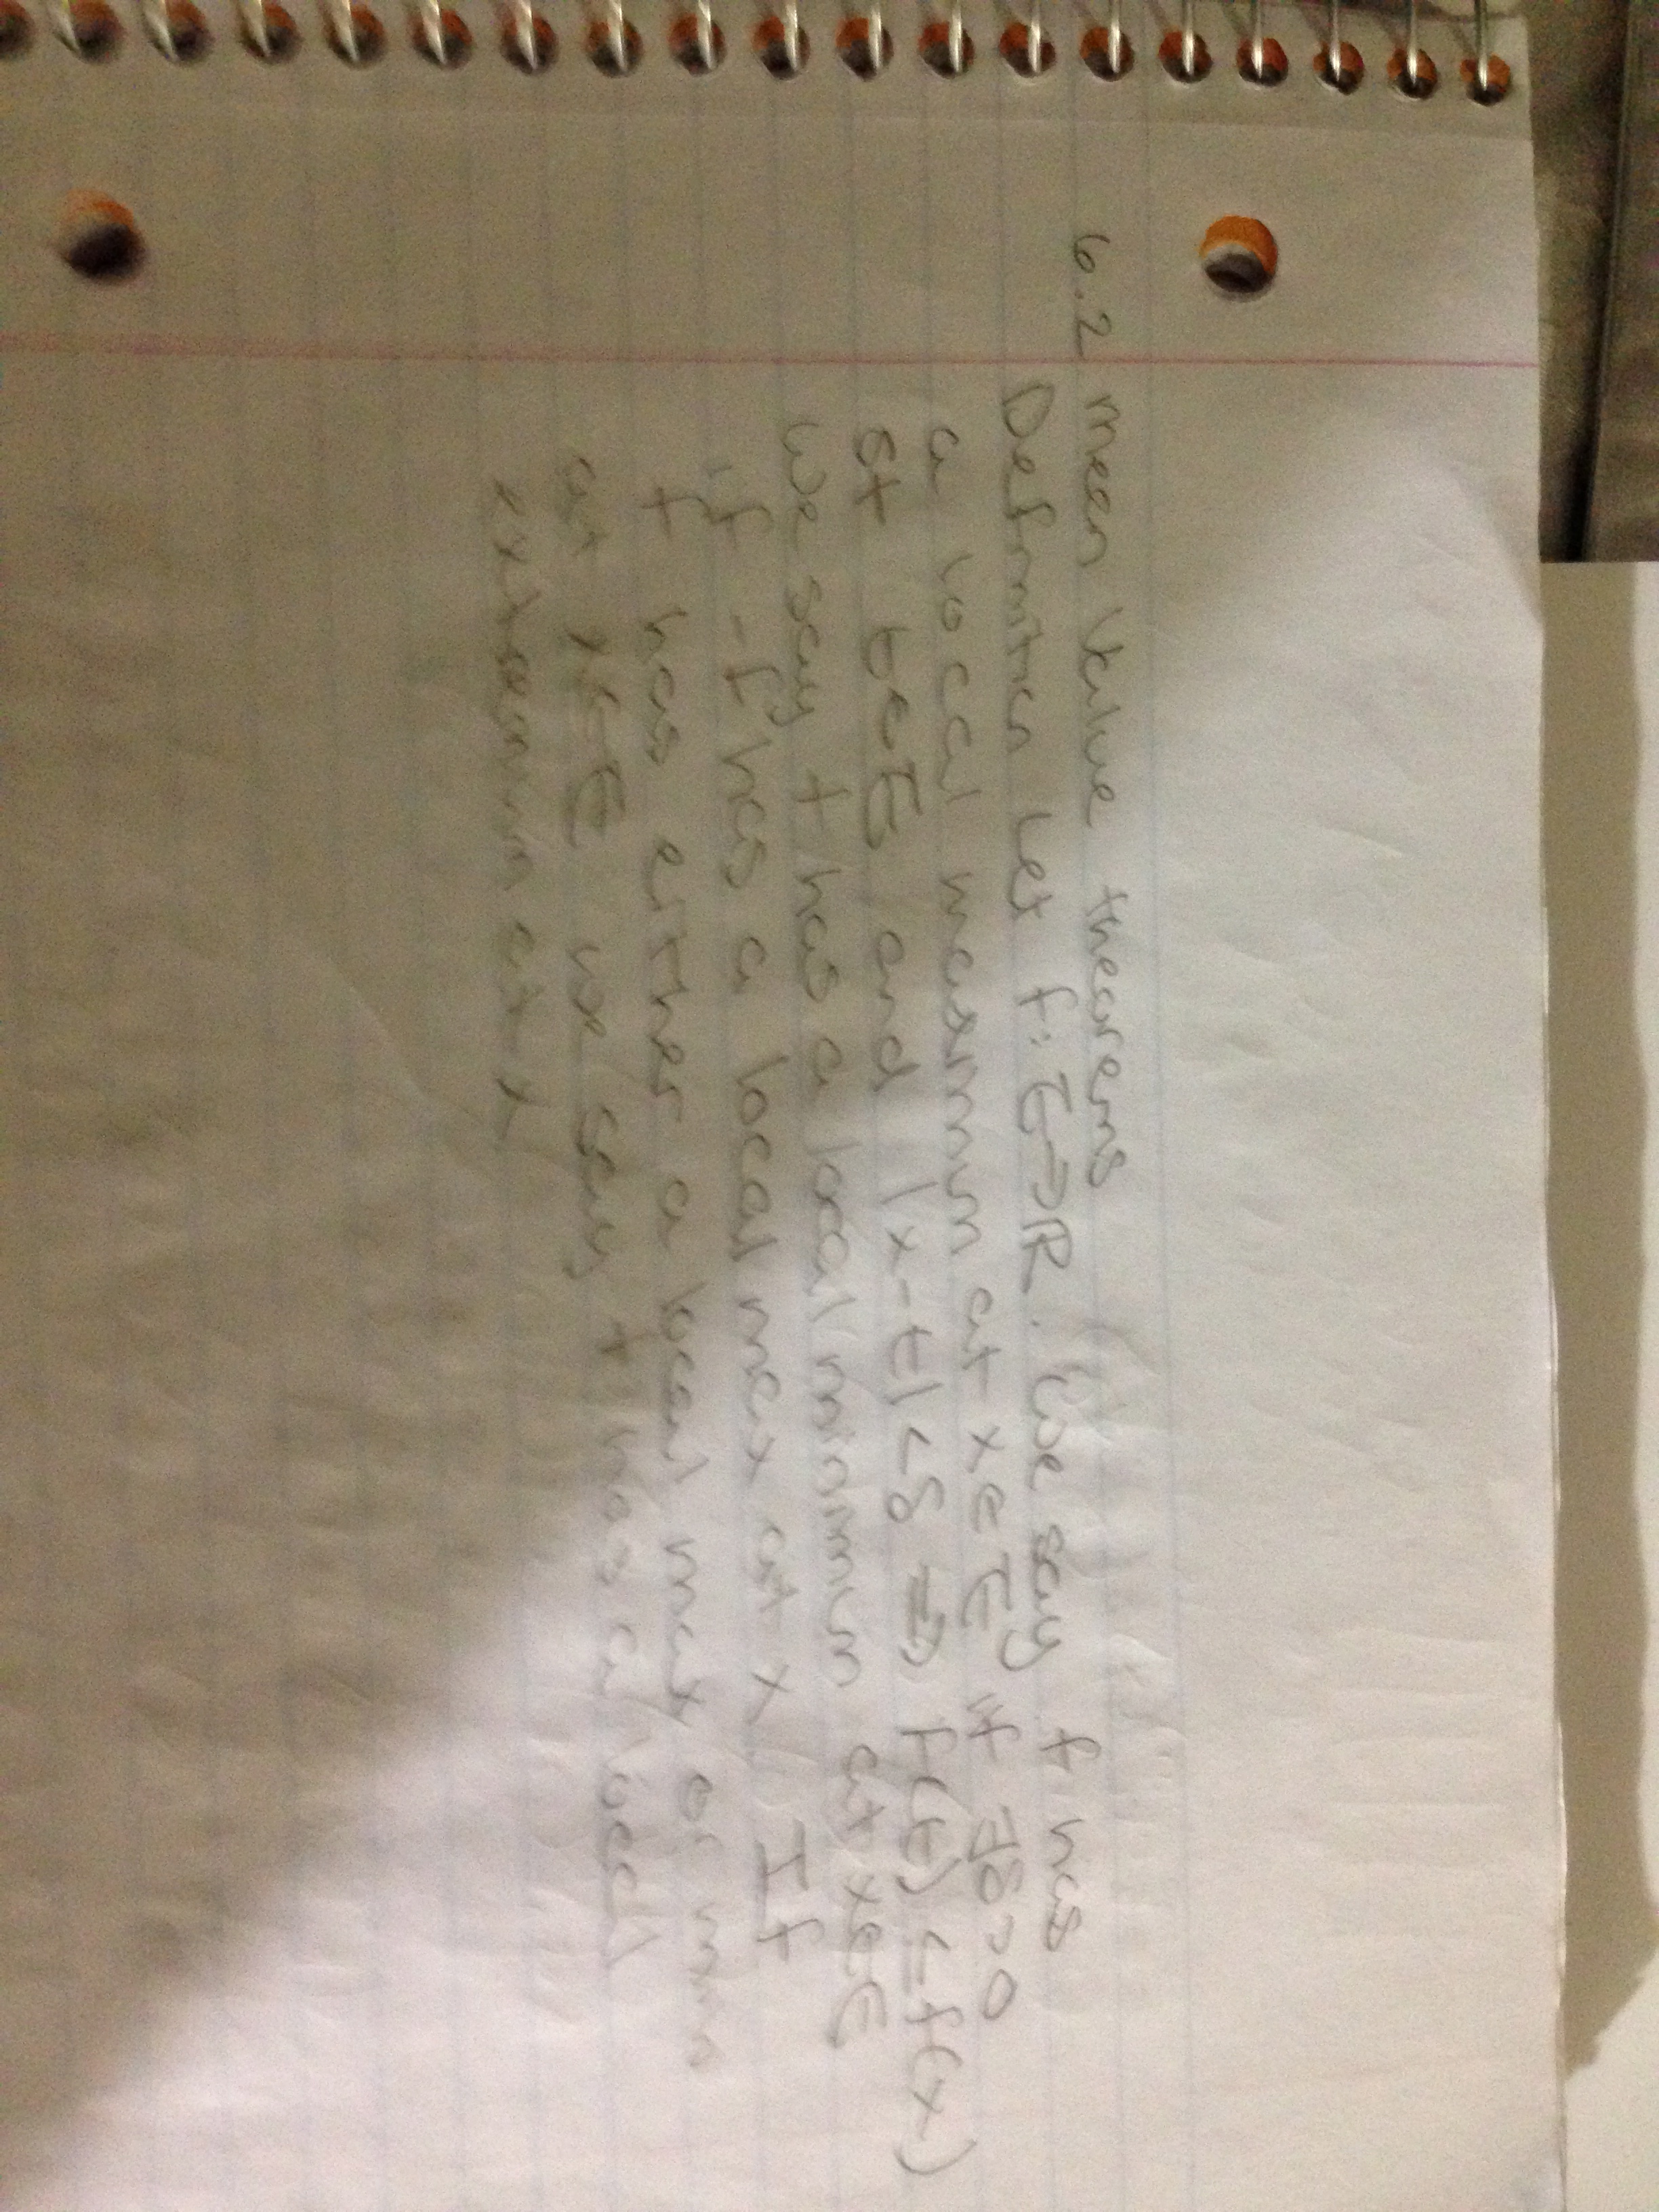 6.2 mean Value theorems
Definition Let f: E→R. We say f has
a local maximum at x∈E if ∃δ>0
st t∈E and |x-t|<δ ⇒ f(t) ≤ f(x)
We say f has a local minimum at x∈E
if -f has a local max at x If
f has either a local max or min
at x∈E we say f has a local
extremum at x